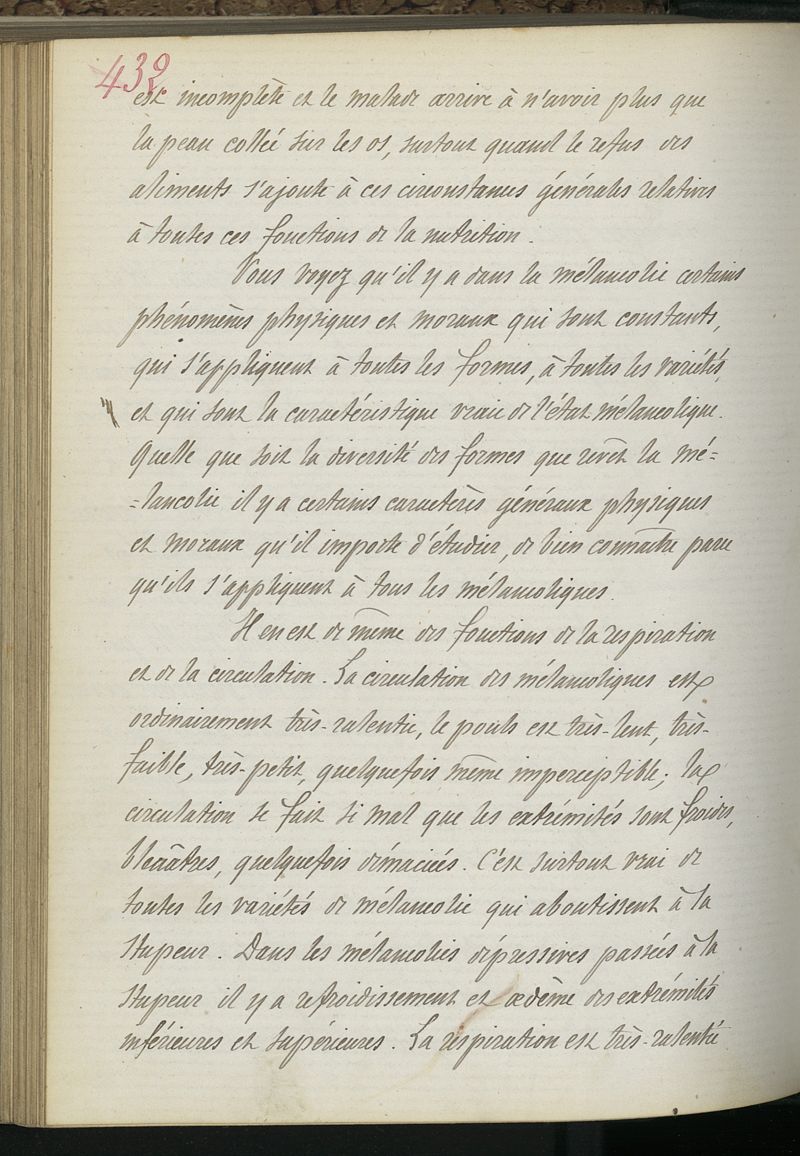 432
est incomplète et le malade arrive à n'avoir plus que
la peau collée sur les os, surtout quand le refus des
aliments s'ajoute à ces circonstances générales relatives
à toutes ces fonctions de la nutrition.
Vous voyez qu'il y a dans la mélancolie certains
phénomènes physiques et moraux qui sont constants,
qui s'appliquent à toutes les formes, à toutes les variétés,
et qui sont la caractéristique vraie de l'état mélancolique.
Quelle que soit la diversité des formes que revêt la mé=
=lancolie il y a certains caractères généraux physiques
et moraux qu'il importe d'étudier, de bien connaître parce
qu'ils s'appliquent à tous les mélancoliques.
Il en est de même des fonctions de la respiration
et de la circulation. La circulation des mélancoliques est
ordinairement très-ralentie, le pouls est très-lent, très-
faible, très-petit, quelquefois même imperceptible; la
circulation se fait si mal que les extrémités sont froides,
bleuâtres, quelquefois . C'est surtout vrai de
toutes les variétés de mélancolie qui aboutissent à la
stupeur. Dans les mélancolies dépressives passées à la
stupeur il y a refroidissement et œdème des extrémités
inférieures et supérieures. La respiration est très-ralentie